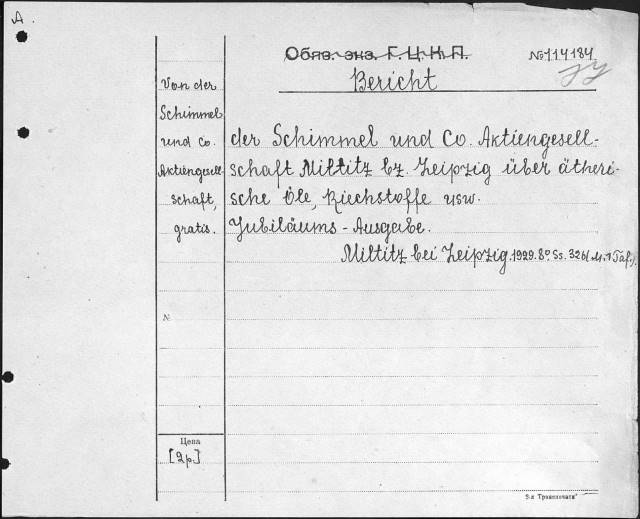 A
Обяз. экз. Г. Ц. К. П.
№114184
Bericht
Von der
Schimmel
und Co.
Aktiengesell-
schaft,
gratis.
der Schimmel und Co. Aktiengesell-
schaft Miltitz bz. Leipzig über ätheri-
sche Öle, Riechstoffe usw.
Jubiläums-Ausgabe.
Miltitz bei Leipzig. 1929. 8° Ss. 326(M. 1 Taf.).
№
Цена
[2р.]